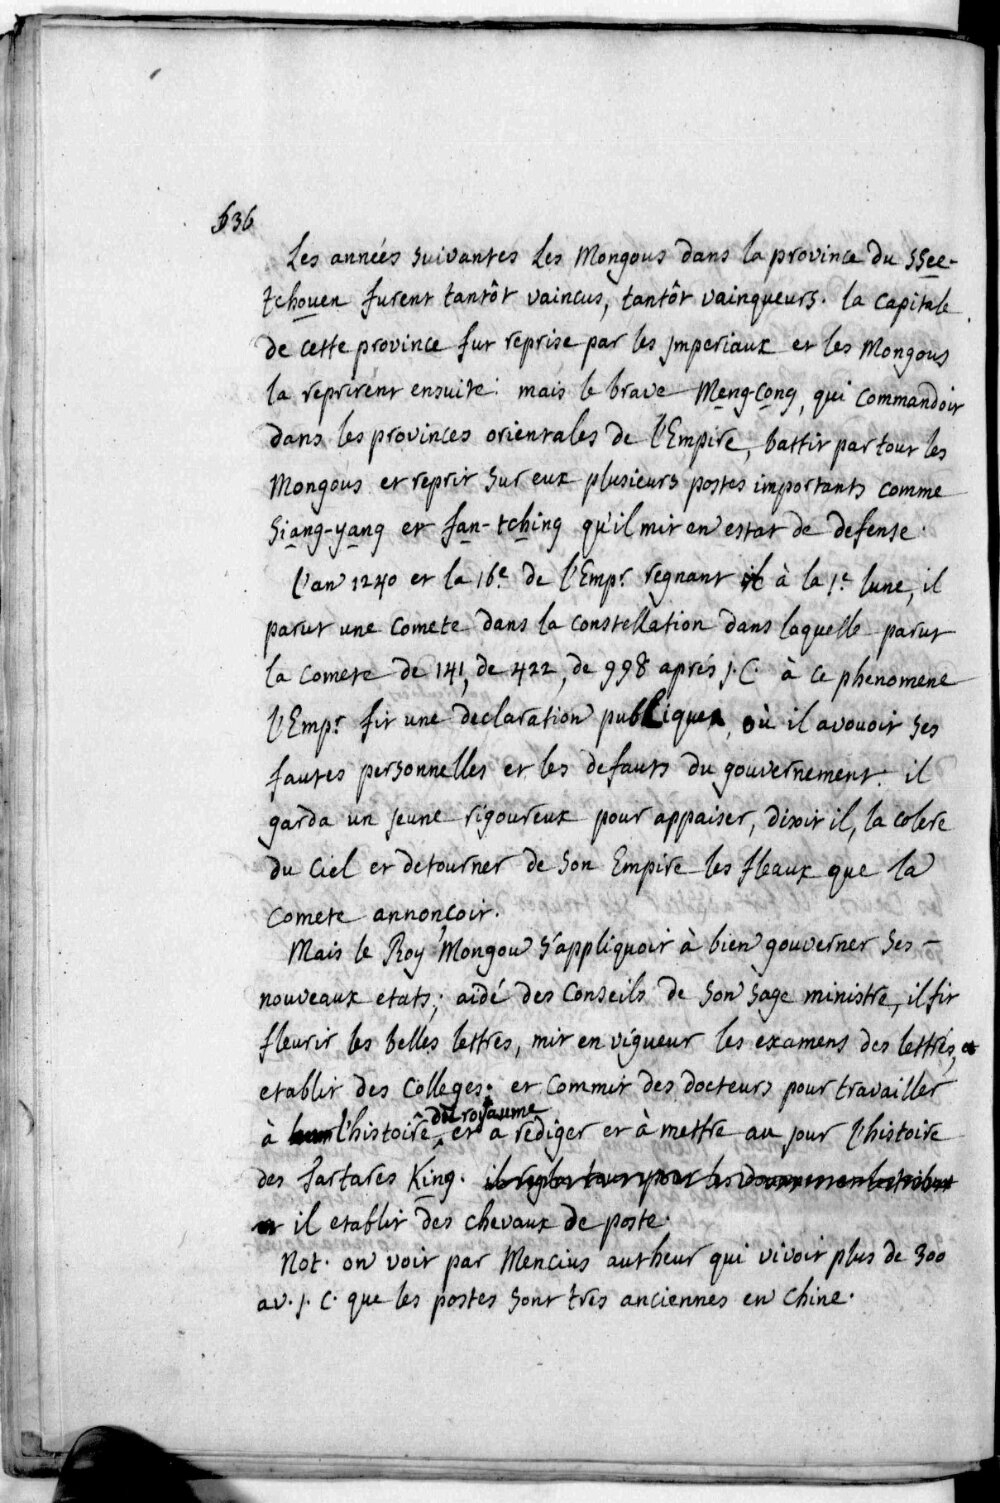 636
Les années suivantes les Mongous dans la province du SSee-
tchouen furent tantôt vaincus, tantôt vainqueurs. la capitale
de cette province fut reprise par les jmperiaux et les Mongous
la reprirent ensuite: mais le brave Meng-Cong, qui commandoit
dans les provinces orientales de l'Empire, battit par tout les
Mongous et reprit sur eux plusieurs postes importants comme
Siang-yang et fan-tching qu'il mit en estat de defense.
L'an 1240 et la 16e de l'Empr regnant à la 1e lune, il
parut une comete dans la constellation dans laquelle parut
la comete de 141, de 422, de 998 aprés j.C. à ce phenomene
l'Empr fit une declaration publique, où il avouoit ses
fautes personnelles et les defauts du gouvernement. il
garda un jeune rigoureux pour appaiser, disoit il, la colere
du Ciel et detourner de son Empire les fleaux que la
comete annonçoit.
Mais le Roy Mongou s'appliquoit à bien gouverner ses
nouveaux etats; aidé des Conseils de son sage ministre, il fit
fleurir les belles lettres, mit en vigueur les examens des lettrés, et
etablit des Colleges; et commit des docteurs pour travailler
à l'histoire du royaume, et a rediger et à mettre au jour l'histoire
des Tartares King.
il etablit des chevaux de poste.
Not. on voit par Mencius autheur qui vivoit plus de 300
av. j. C. que les postes sont tres anciennes en Chine.